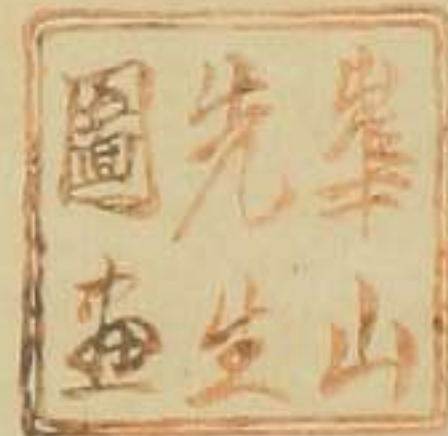 崋山
先生
圖畫